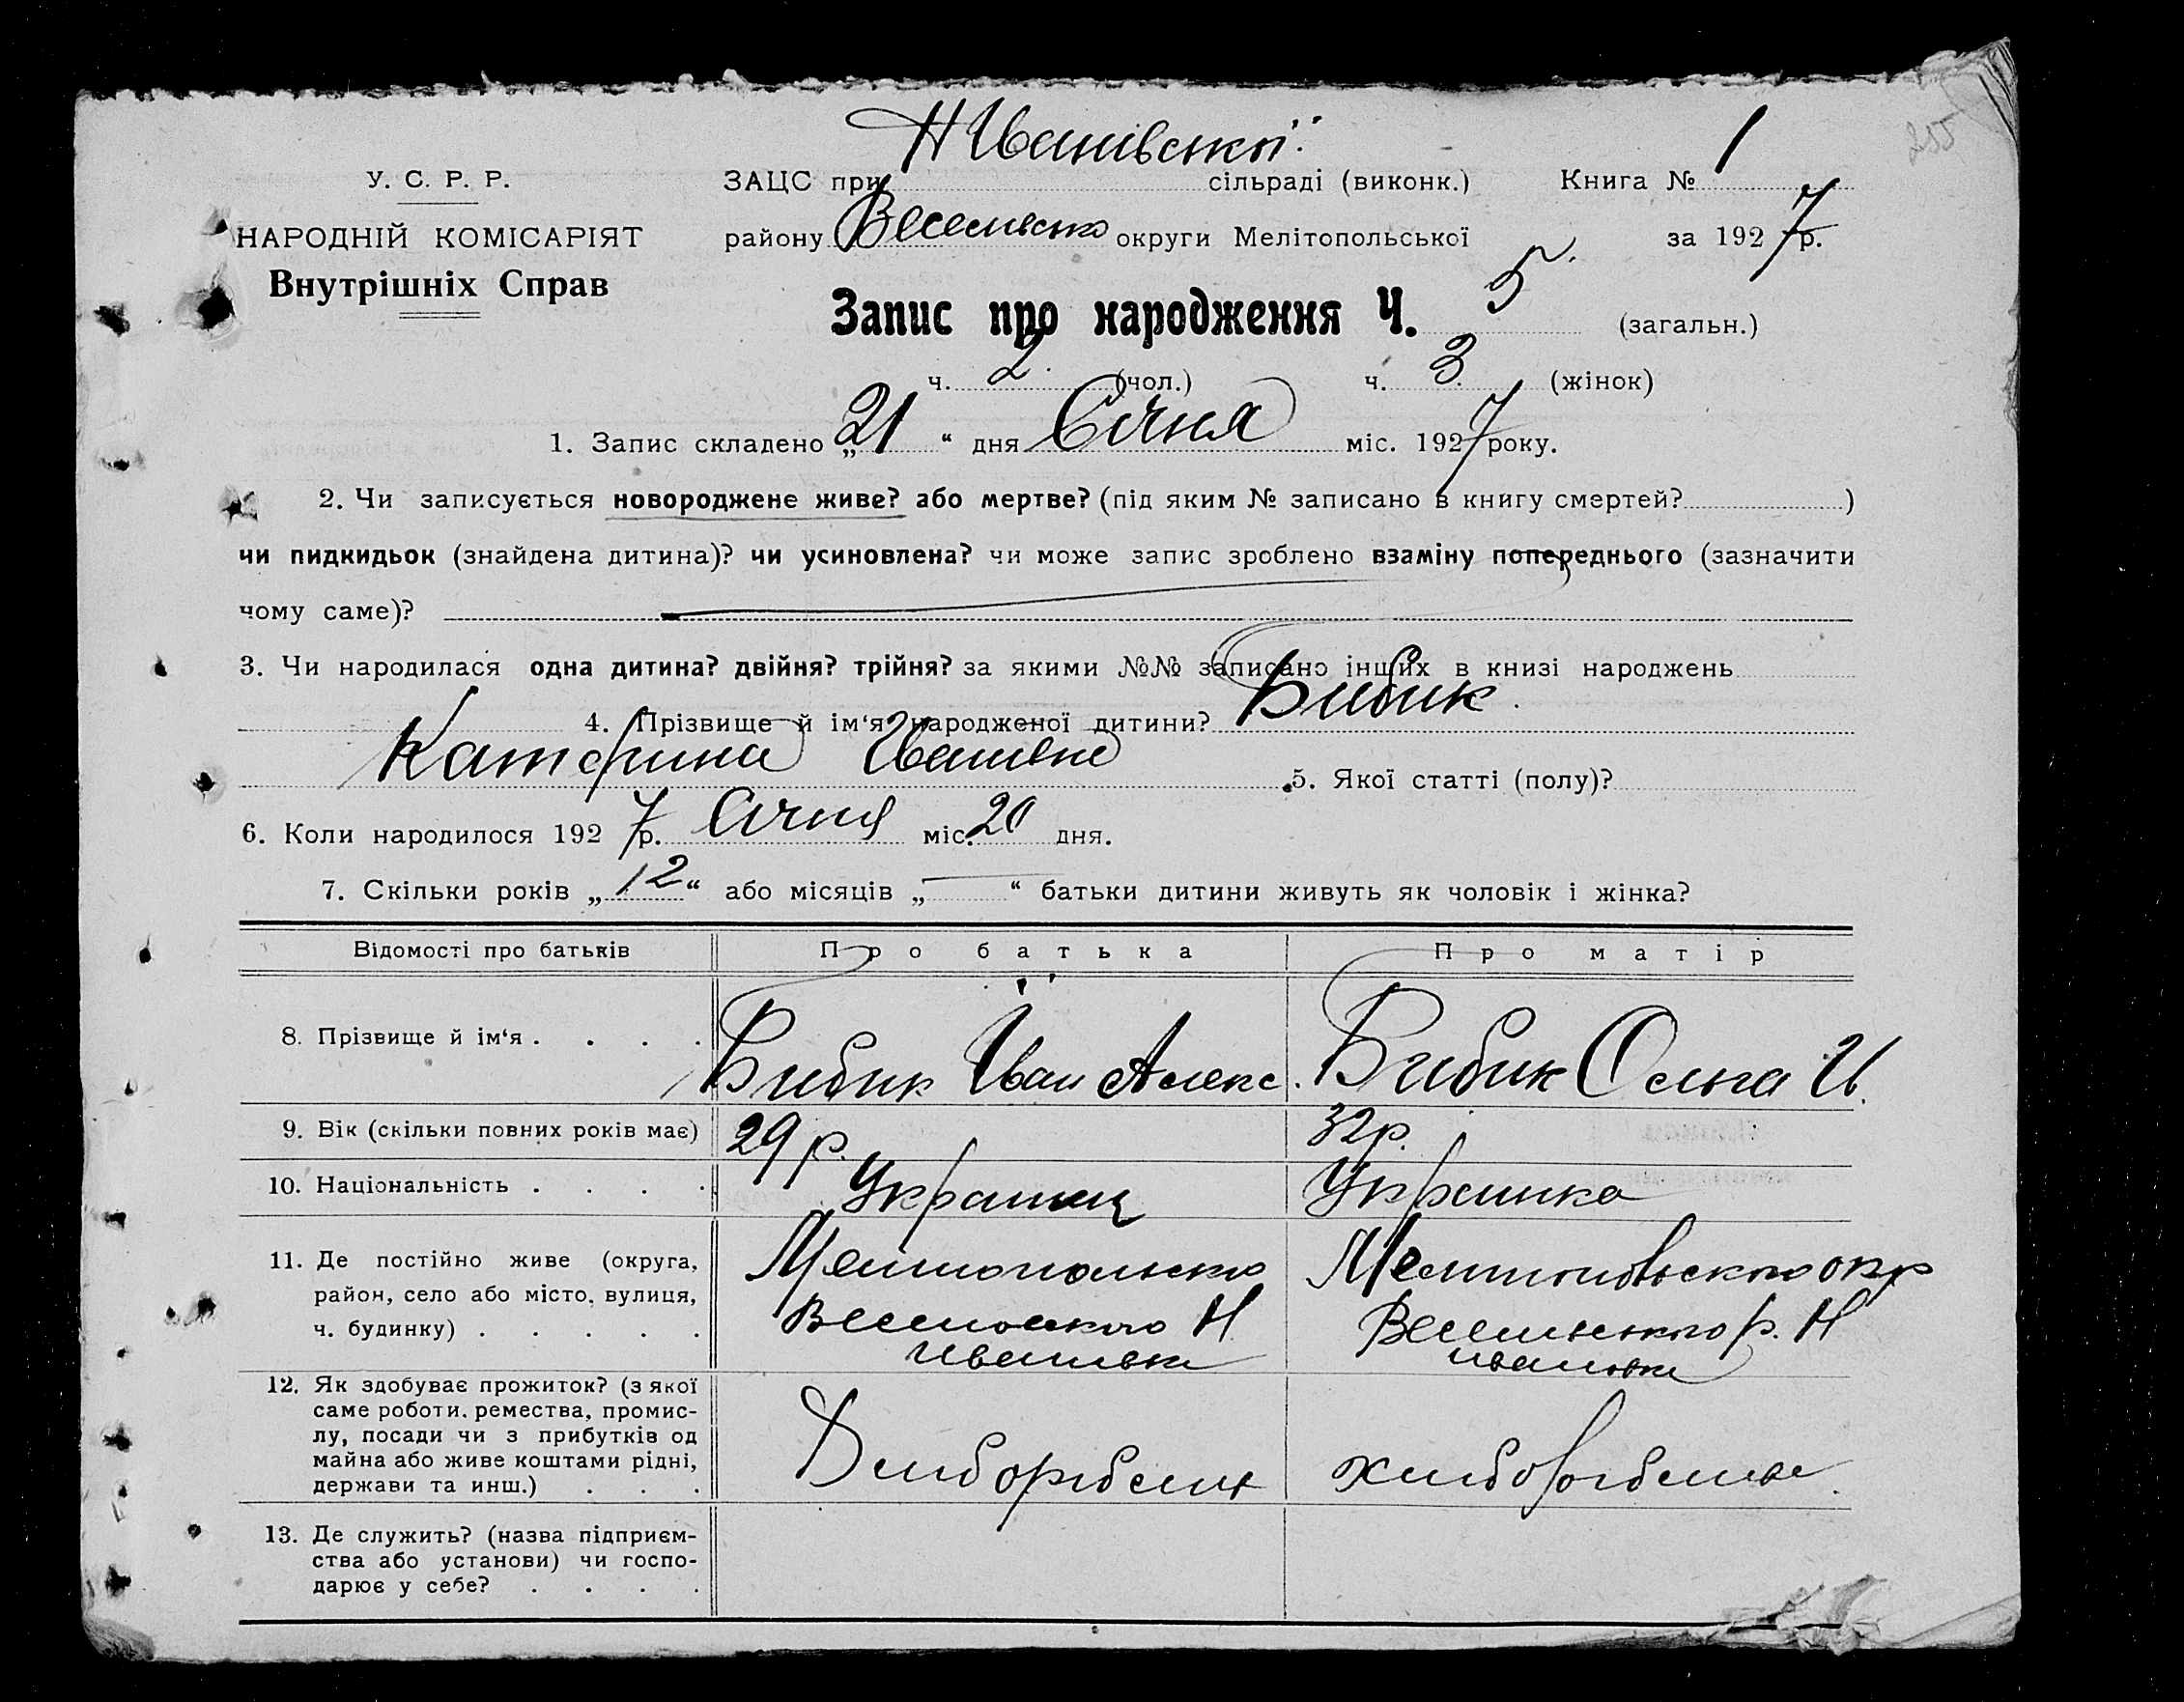 Н Иванівської
1
255
У. С. Р. Р.
ЗАЦС при сільраді (виконк.) Книга №
НАРОДНІЙ КОМІСАРІЯТ
району Веселівсько округи Мелітопольської за 1927 р.
Внутрішніх Справ
Запис про народження Ч. 5. (загальн.)
ч. 2. (чол.) ч. 3. (жінок)
1. Запис складено „21“ дня Січня міс. 1927 року.
2. Чи записується новороджене живе? або мертве? (під яким № записано в книгу смертей? )
чи пидкидьок (знайдена дитина)? чи усиновлена? чи може запис зроблено взаміну попереднього (зазначити
чому саме)?
3. Чи народилася одна дитина? двійня? трійня? за якими №№ записано інших в книзі народжень
4. Прізвище й ім‘я народженої дитини? Бибик.
Катерина Ивановна 5. Якої статті (полу)?
6. Коли народилося 1927 р. Січня міс. 20 дня.
7. Скільки років „12“ або місяців „—“ батьки дитини живуть як чоловік і жінка?
Відомості про батьків Про батька Про матір
8. Прізвище й ім‘я . . . . Бибик Іван Алекс. Бибик Ольга И.
9. Вік (скільки повних років має) 29 р. 32 р.
10. Національність . . . . Украинец Украинка
11. Де постійно живе (округа,
район, село або місто, вулиця,
ч. будинку) . . . . .
Мелитопольско
Веселовского Н
Ивановка
Мелитопольского окр
Веселовского р. Н
Ивановка
12. Як здобуває прожиток? (з якої
саме роботи, ремества, промис-
лу, посади чи з прибутків од
майна або живе коштами рідні,
держави та инш.) . . .
13. Де служить? (назва підприєм-
ства або установи) чи госпо-
дарює у себе? . . . .